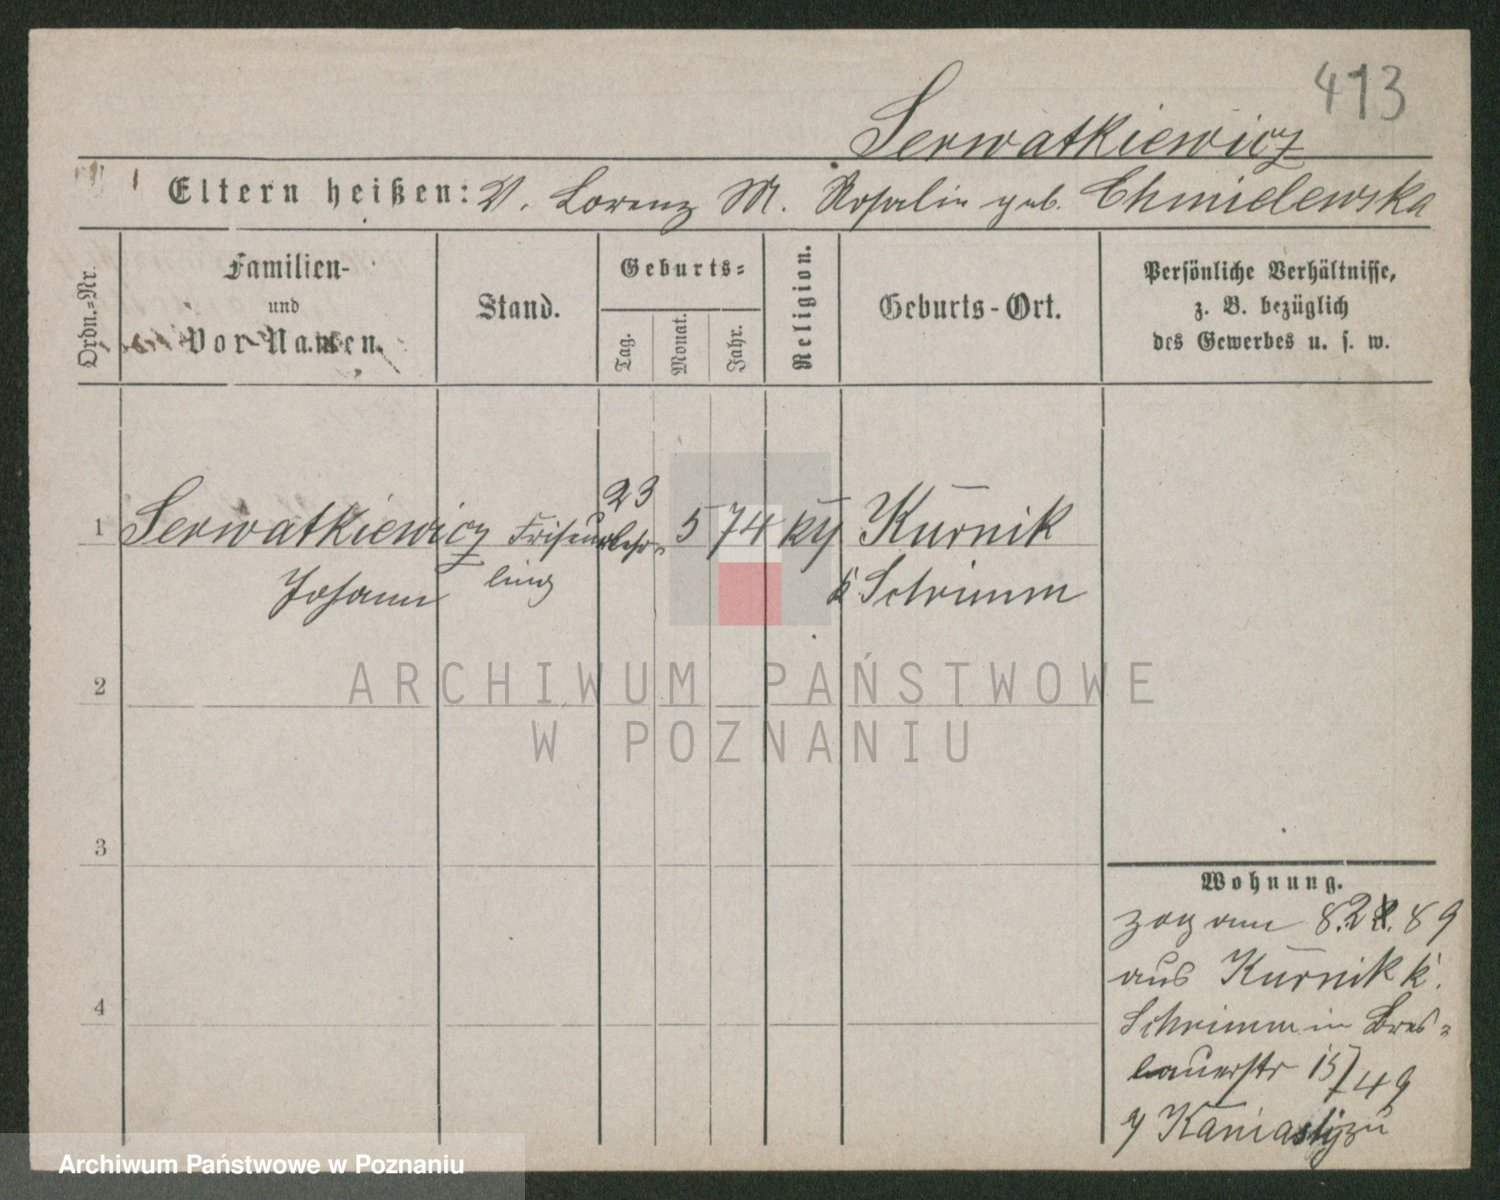 413
Serwatkiewicz
Eltern heißen: V. Lorenz M. Rosalie geb. Chmielewska
Ordn.=Nr.
Familien-
und
Vor-Namen.
Stand.
Geburts=
Tag.
Monat.
Jahr.
Religion.
Geburts-Ort.
Persönliche Verhältnisse,
z. B. bezüglich
des Gewerbes u. s. w.
1 Serwatkiewicz Friseurlehr= 23 5 74 Kurnik
Johann ling Schrimm
2
3
4
Wohnung.
zog am 8.2. 89
aus Kurnik k.
Schrimm in Bres=
lauerstr 15/49
ARCHIWUM PAŃSTWOWE
W POZNANIU
Archiwum Państwowe w Poznaniu